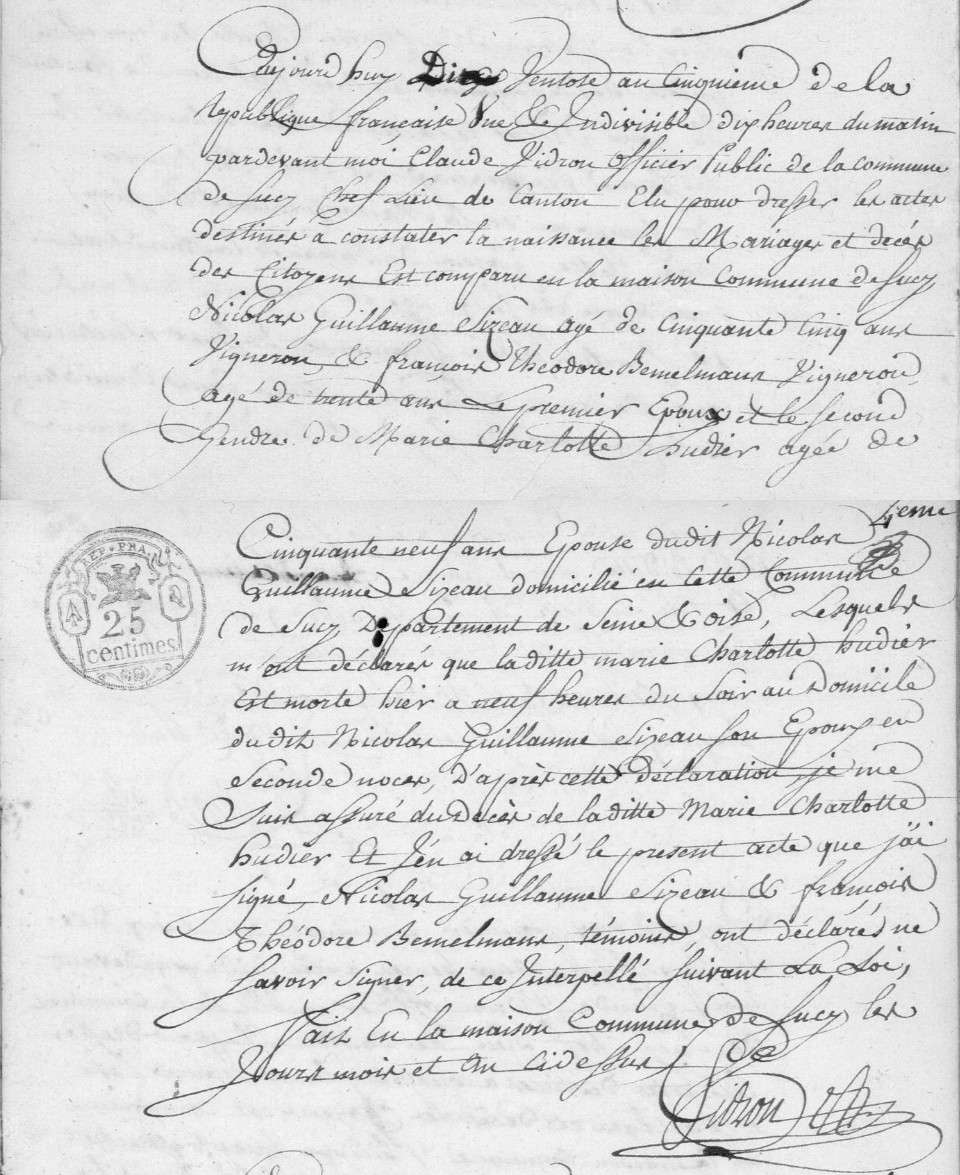 Aujourd huy Dix Ventose an Cinquieme de la
Republique francaise Une & Indivisible dix heures du matin
pardevant moi Claude Vidron Officier Public de la commune
de Sucy Chef Lieu de Canton Elu pour dresser les actes
destinés à constater la naissance les Mariages et decés
des Citoyens Est comparu en la maison Commune de Sucy
Nicolas Guillaume Sizeau agé de Cinquante Cinq ans
Vigneron, & françois Theodore Bemelmans Vigneron
agé de trente ans Le premier Epoux et le Second
Gendre de Marie Charlotte hudier agée de
4eme
Cinquante neuf ans Epouse dudit Nicolas
Guillaume Sizeau domicilié en Cette Commune
de Sucy Departement de Seine & oise, Lesquels
m'ont déclarés que laditte marie Charlotte hudier
Est morte hier a neuf heures du Soir au Domicile
dudit Nicolas Guillaume Sizeau Son Epoux en
Seconde noces, D'après cette déclaration je me
Suis assuré du Decès de laditte Marie Charlotte
hudier Et J'en ai dressé le present acte que j'ai
signé, Nicolas Guillaume Sizeau & françois
Théodore Bemelmans, témoins, ont déclarés ne
Savoir Signer, de ce Interpellé Suivant La Loi,
Fait En la maison Commune de Sucy les
Jours mois et An cidessus
Vidron
REP. FRA.
25
centimes.